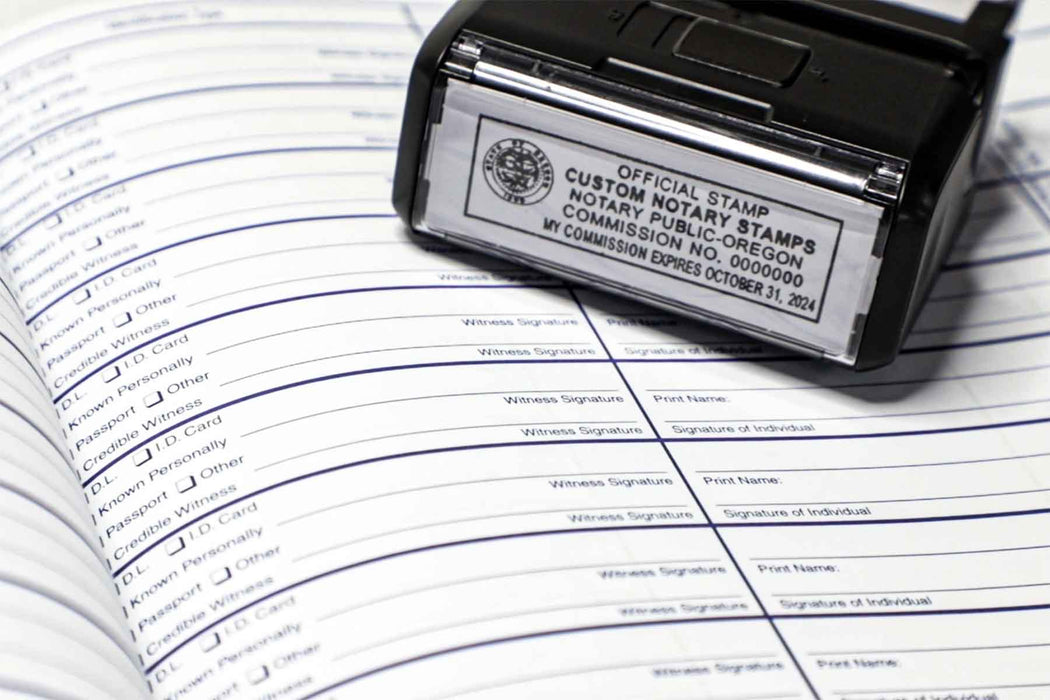 STATE OF OREGON
1859
OFFICIAL STAMP
CUSTOM NOTARY STAMPS
NOTARY PUBLIC-OREGON
COMMISSION NO. 0000000
MY COMMISSION EXPIRES OCTOBER 31, 2024
Identification Type
I.D. Card
Known Personally
Other
Credible Witness
D.L. I.D. Card
Known Personally
Passport Other
Credible Witness
Witness Signature
D.L. I.D. Card
Known Personally
Witness Signature Print Name:
Passport Other
Credible Witness
Witness Signature Signature of Individual
D.L. I.D. Card
Known Personally
Witness Signature Print Name:
Passport Other
Credible Witness
Witness Signature Signature of Individual
D.L. I.D. Card
Known Personally
Witness Signature Print Name:
Passport Other
Credible Witness
Witness Signature Signature of Individual
D.L. I.D. Card
Known Personally
Witness Signature Print Name:
Passport Other
Credible Witness
Witness Signature Signature of Individual
D.L. I.D. Card
Known Personally
Witness Signature Print Name:
Passport Other
Witness
Signature of Individual